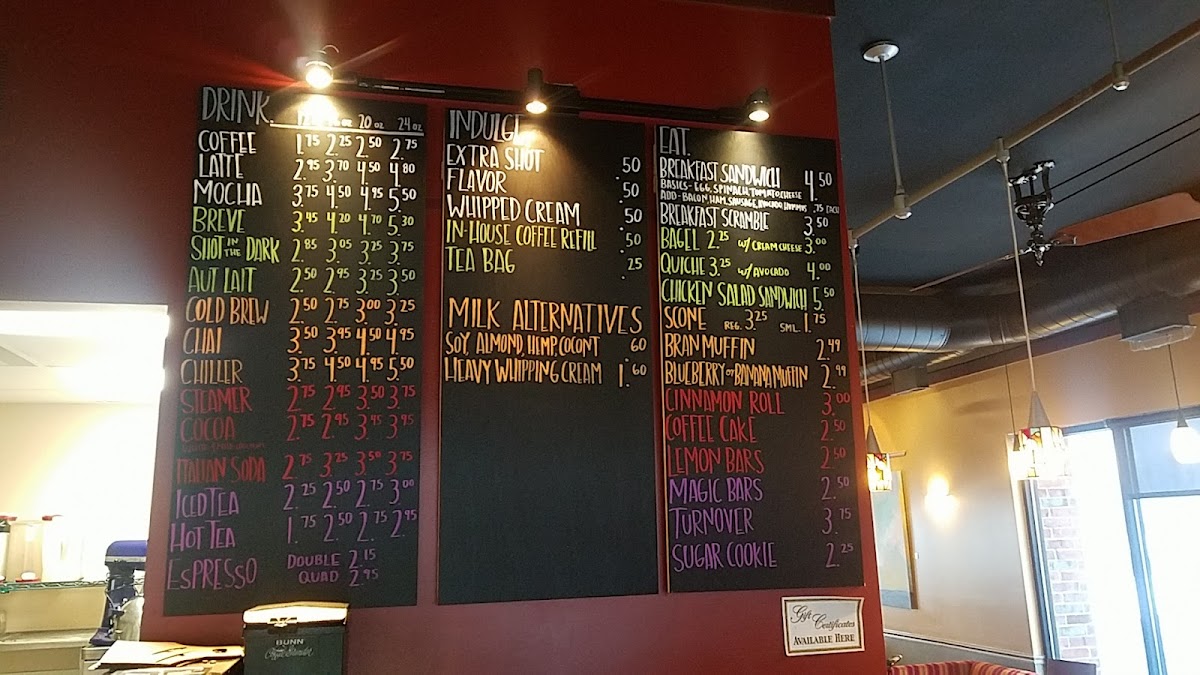 DRINK.
20 oz 24 oz
COFFEE 1.75 2.25 2.50 2.75
LATTE 2.95 3.70 4.50 4.80
MOCHA 3.75 4.50 4.95 5.50
BREVE 3.95 4.20 4.70 5.30
SHOT IN THE DARK 2.85 3.05 3.25 3.75
AUT LAIT 2.50 2.95 3.25 3.50
COLD BREW 2.50 2.75 3.00 3.25
CHAI 3.50 3.95 4.50 4.95
CHILLER 3.75 4.50 4.95 5.50
STEAMER 2.75 2.95 3.50 3.75
COCOA 2.75 2.95 3.45 3.95
ITALIAN SODA 2.75 3.25 3.50 3.75
ICED TEA 2.25 2.50 2.75 3.00
HOT TEA 1.75 2.50 2.75 2.95
ESPRESSO DOUBLE 2.15
QUAD 2.95
INDULGE
EXTRA SHOT .50
FLAVOR .50
WHIPPED CREAM .50
IN-HOUSE COFFEE REFILL .50
TEA BAG .25
MILK ALTERNATIVES
SOY, ALMOND, HEMP, COCONT .60
HEAVY WHIPPING CREAM 1.60
EAT.
BREAKFAST SANDWICH 4.50
BASICS - EGG, SPINACH, TOMATO, CHEESE
ADD - BACON, HAM, SAUSAGE, AVOCADO, HUMMUS .75 EACH
BREAKFAST SCRAMBLE 3.50
BAGEL 2.25 w/ CREAM CHEESE 3.00
QUICHE 3.25 w/ AVOCADO 4.00
CHICKEN SALAD SANDWICH 5.50
SCONE REG. 3.25 SML. 1.75
BRAN MUFFIN 2.49
BLUEBERRY or BANANA MUFFIN 2.99
CINNAMON ROLL 3.00
COFFEE CAKE 2.50
LEMON BARS 2.50
MAGIC BARS 2.50
TURNOVER 3.75
SUGAR COOKIE 2.25
Gift Certificates
AVAILABLE HERE
BUNN